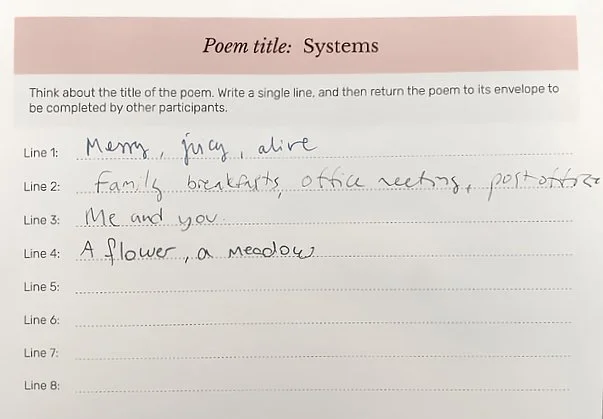 Poem title: Systems
Think about the title of the poem. Write a single line, and then return the poem to its envelope to
be completed by other participants.
Line 1: Messy, juicy, alive
Line 2: Family breakfasts, office meeting, post office
Line 3: Me and you
Line 4: A flower, a meadow
Line 5:
Line 6:
Line 7:
Line 8: